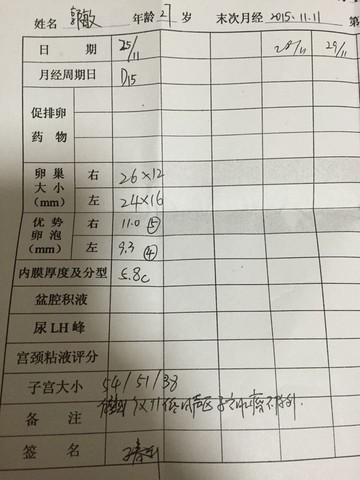 姓名 郭敏 年龄 27 岁 末次月经 2015.11.11 第
日期 25/11 28/11 29/11
月经周期日 D15
促排卵
药物
卵巢 右 26×12
大小
(mm) 左 24×16
优势 右 11.0 ⑤
卵泡
(mm) 左 9.3 ④
内膜厚度及分型 5.8C
盆腔积液
尿LH峰
宫颈粘液评分
子宫大小 54/51/38
备注
签名